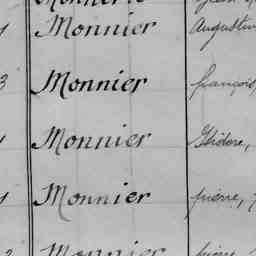 Monnier Augustin
3 Monnier françois
Monnier Isidore,
Monnier pierre,
Monnier